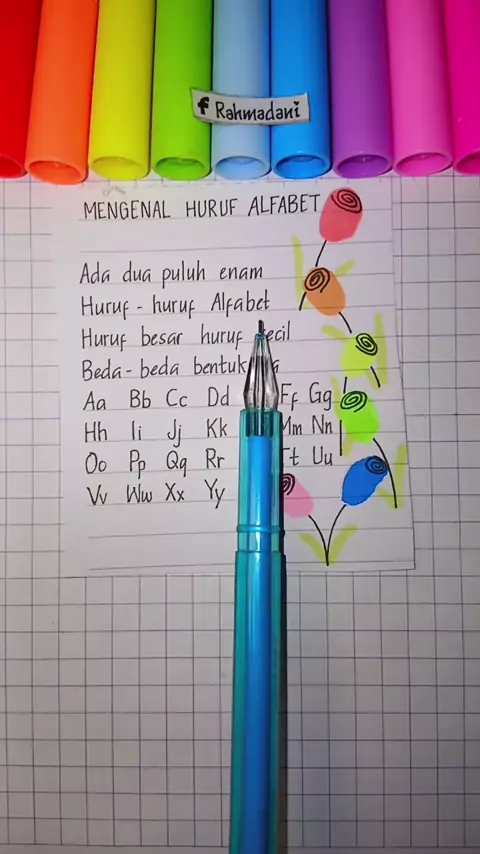 f Rahmadani
MENGENAL HURUF ALFABET
Ada dua puluh enam
Huruf - huruf Alfabet
Huruf besar huruf
Beda - beda
Aa Bb Cc Dd Ff Gg
Hh Ii Jj Kk Mm Nn
Oo Pp Qq Rr Tt Uu
Vv Ww Xx Yy